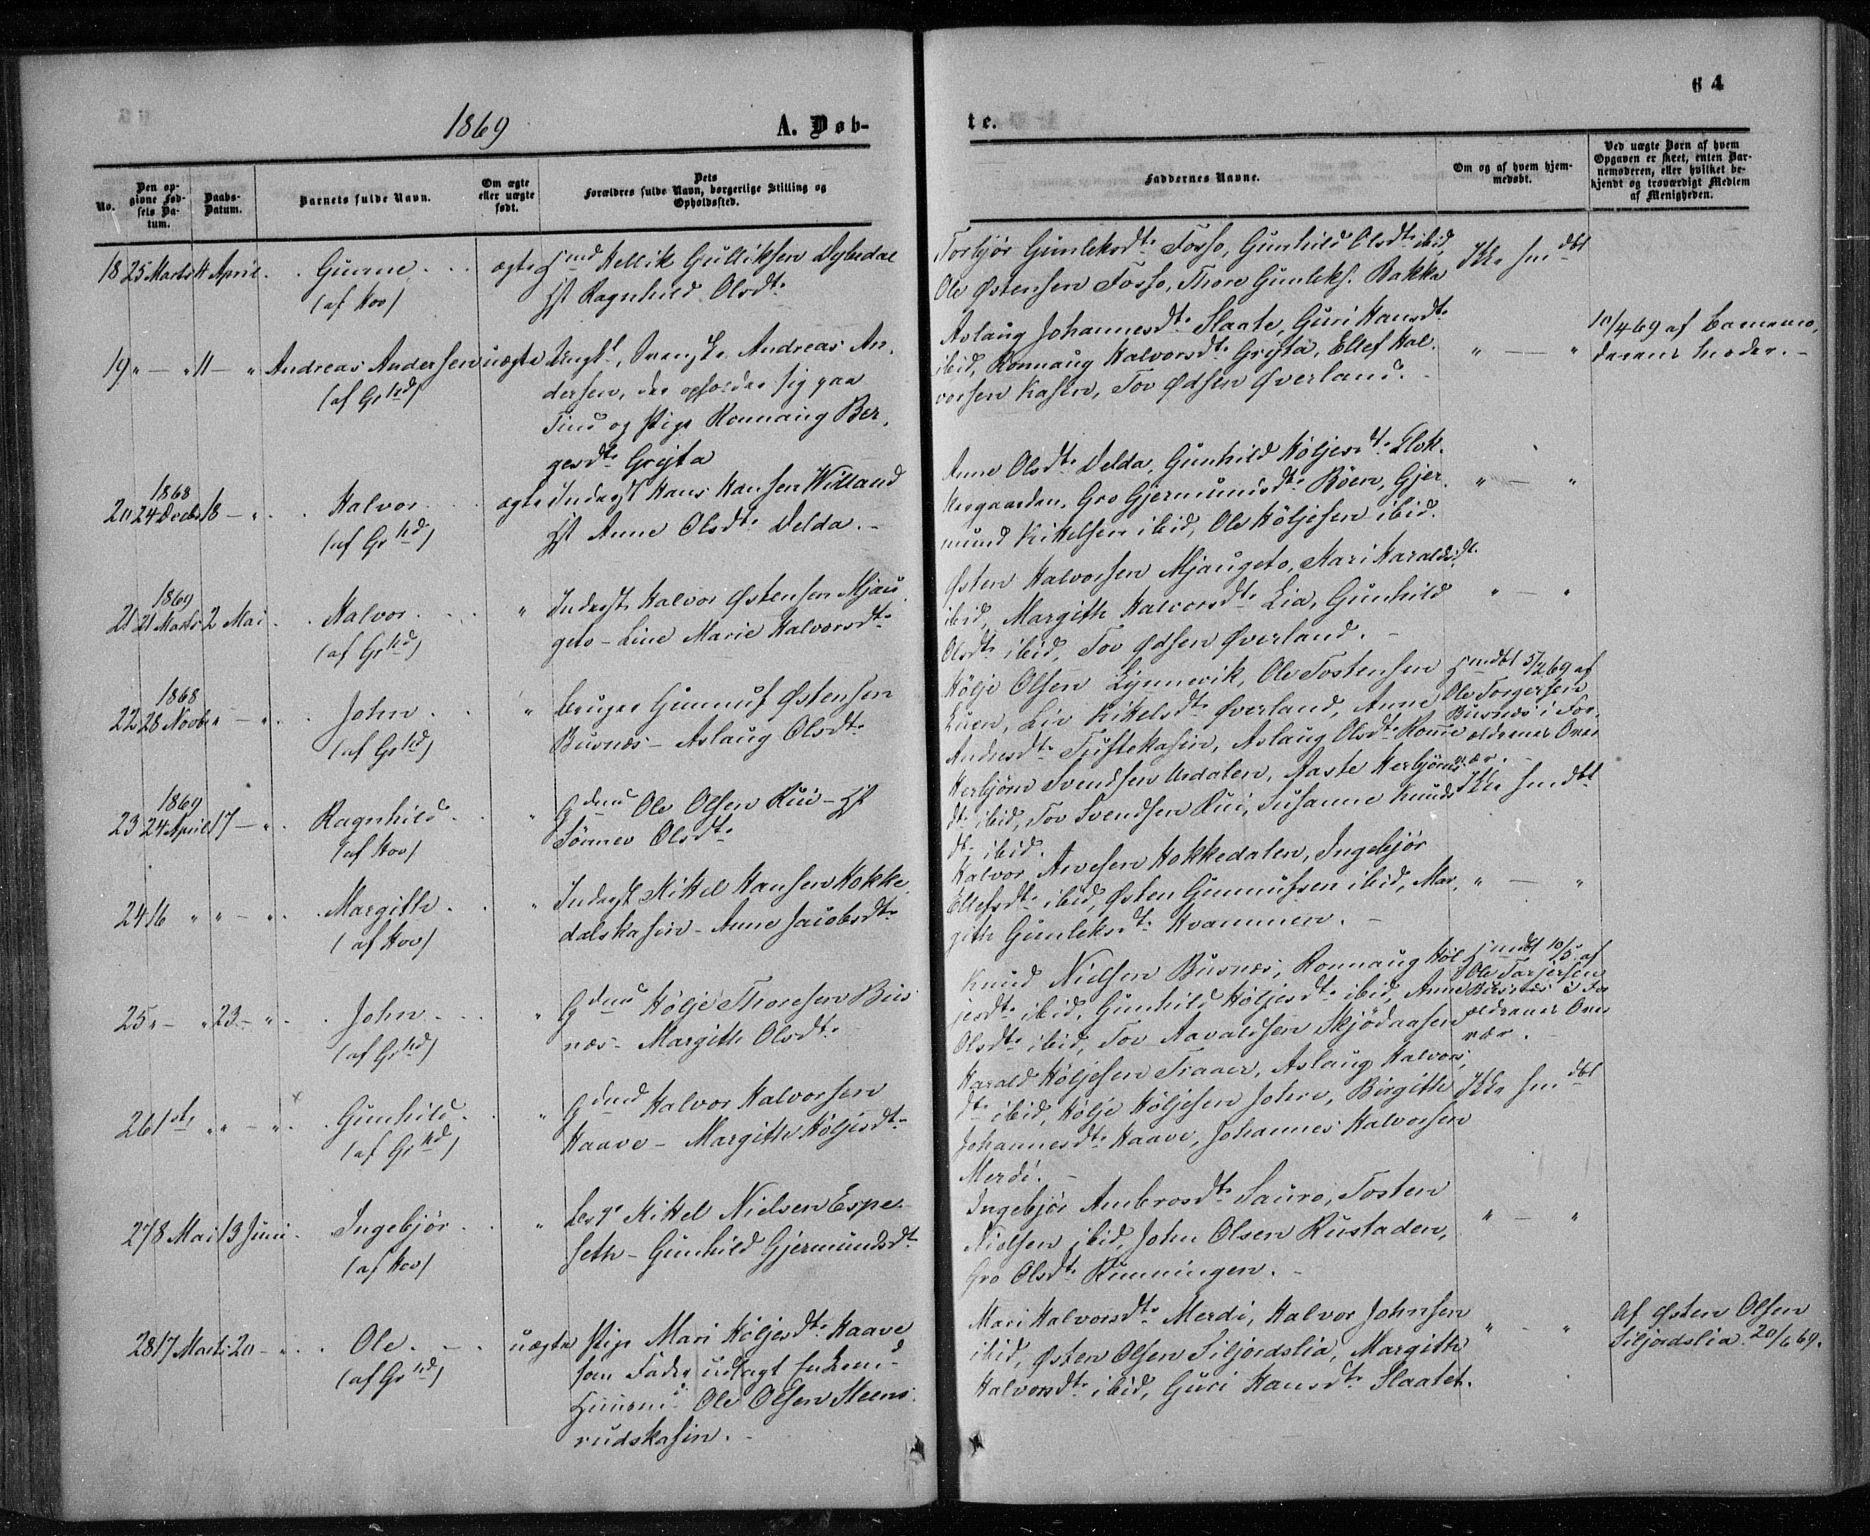 64
1869
A. Døb-
te.
No.
Den op-
givne Fød-
sels Da-
tum.
Daabs-
Datum.
Barnets fulde Navn.
Om ægte
eller uægte
født.
Dets
Forældres fulde Navn, borgerlige Stilling og
Opholdssted.
Faddernes Navne.
Om og af hvem hjem-
medøbt.
Ved uægte Børn af hvem
Opgaven er skeet, enten Bar-
nemoderen, eller hvilket be-
kjendt og troværdigt Medlem
af Menigheden.
18 25 Marts 11 April Gunne ægte Gmd Kittil Gulliksen Dyledal
(af Hov) Hst Ragnhild Olsdt.
Torbjør Gunleksdt. Fosso, Gunhild Olsdt. ibid,
Ole Østensen Fosso, Thore Gunleks. Bakka
Ikke hmdbt
19 " — " 11 — " Andreas Andersen uægte Ungk., Svenske Andreas An-
(af Grhd) dersen, der opholder sig paa
Tind og Pige Ronnaug Ber-
gesdt. Gryta
Aslaug Johannesdt. Slaate, Guri Hansdt.
ibid, Ronnaug Halvorsdt. Gryta, Ellef Hal-
vorsen Kasin, Tov Ødsen Øverland.
" — "
10/4 69 af Barnemo-
derens Moder. —
20 1868 24 Decbr 18 — " Halvor ægte Inderst Hans Hansen Willand
(af Grhd) Hst Anne Olsdt. Delda. —
Anne Olsdt. Delda, Gunhild Høljesdt. Flek-
kergaarden, Gro Gjermundsdt. Bøen, Gjer-
mund Kittelsen ibid, Ole Høljesen ibid.
" — "
21 1869 21 Marts 2 Mai Halvor " Inderst Halvor Østensen Mjau-
(af Grhd) geto — Line Marie Halvorsdt.
Østen Halvorsen Mjaugeto, Mari Haraldsdt.
ibid, Margith Halvorsdt. Lia, Gunhild
Olsdt. ibid, Tov Ødsen Øverland. —
" — "
22 1868 28 Novbr " — " John " Bruger Gunnuf Østensen
(af Grhd) Busnæs — Aslaug Olsdt.
Hølje Olsen Lynnevik, Ole Tostensen
Luen, Liv Kittelsdt. Øverland, Anne
Andresdt. Tuftekasin, Aslaug Olsdt. Romme
Hmdbt 5/2 69 af
Ole Torgersen
Busnæs i For-
ældrenes Over-
vær. —
23 1869 24 April 17 — " Ragnhild " Gdmd Ole Olsen Rui — Hst
(af Hov) Sønnev Olsdt.
Herbjørn Svendsen Urdalen, Aaste Herbjørns-
dt. ibid, Tov Svendsen Rui, Susanne Knuds-
dt. ibid.
Ikke hmdbt
24 16 " " — " Margith " Inderst Kittel Hansen Hokke-
(af Hov) dalskasin — Anne Jacobsdt.
Halvor Arvesen Hokkedalen, Ingebjør
Ellefsdt. ibid, Østen Gunnufsen ibid, Mar-
gith Gunleksdt. Kvammen. —
" — "
25 " — " 23 — " John " Gdmd Hølje Thoresen Bus-
(af Grhd) næs — Margith Olsdt.
Knud Nielsen Busnæs, Ronnaug Høl-
jesdt. ibid, Gunhild Høljesdt. ibid, Anne
Olsdt. ibid, Tov Aavaldsen Skjødaasen
Hmdbt 10/5 af
Ole Torjersen
Busnæs i For-
ældrenes Over-
vær.
26 1ste " " — " Gunhild " Gdmd Halvor Halvorsen
(af Grhd) Haave — Margith Høljesdt.
Harald Høljesen Traaer, Aslaug Halvors-
dt. ibid, Hølje Høljesen Johre, Birgith
Johannesdt. Haave, Johannes Halvorsen
Merdi. —
Ikke hmdbt
27 8 Mai 13 Juni Ingebjør " Brgr Kittel Nielsen Espe-
(af Hov) seth — Gunhild Gjermundsdt.
Ingebjør Ambrosdt. Sauro, Tosten
Nielsen ibid, John Olsen Rustaden,
Gro Olsdt. Runningen. —
" — "
28 17 Marts 20 — " Ole uægte Pige Mari Høljesdt. Haave
(af Grhd) som Fader udlagt Enkemd
Ole Olsen Steens-
rudskasin. —
Mari Halvorsdt. Merdi, Halvor Johnsen
ibid, Østen Olsen Siljordslia, Margith
Halvorsdt. ibid, Guri Hansdt. Slaatet.
" — "
Af Østen Olsen
Siljordslia 20/6 69.